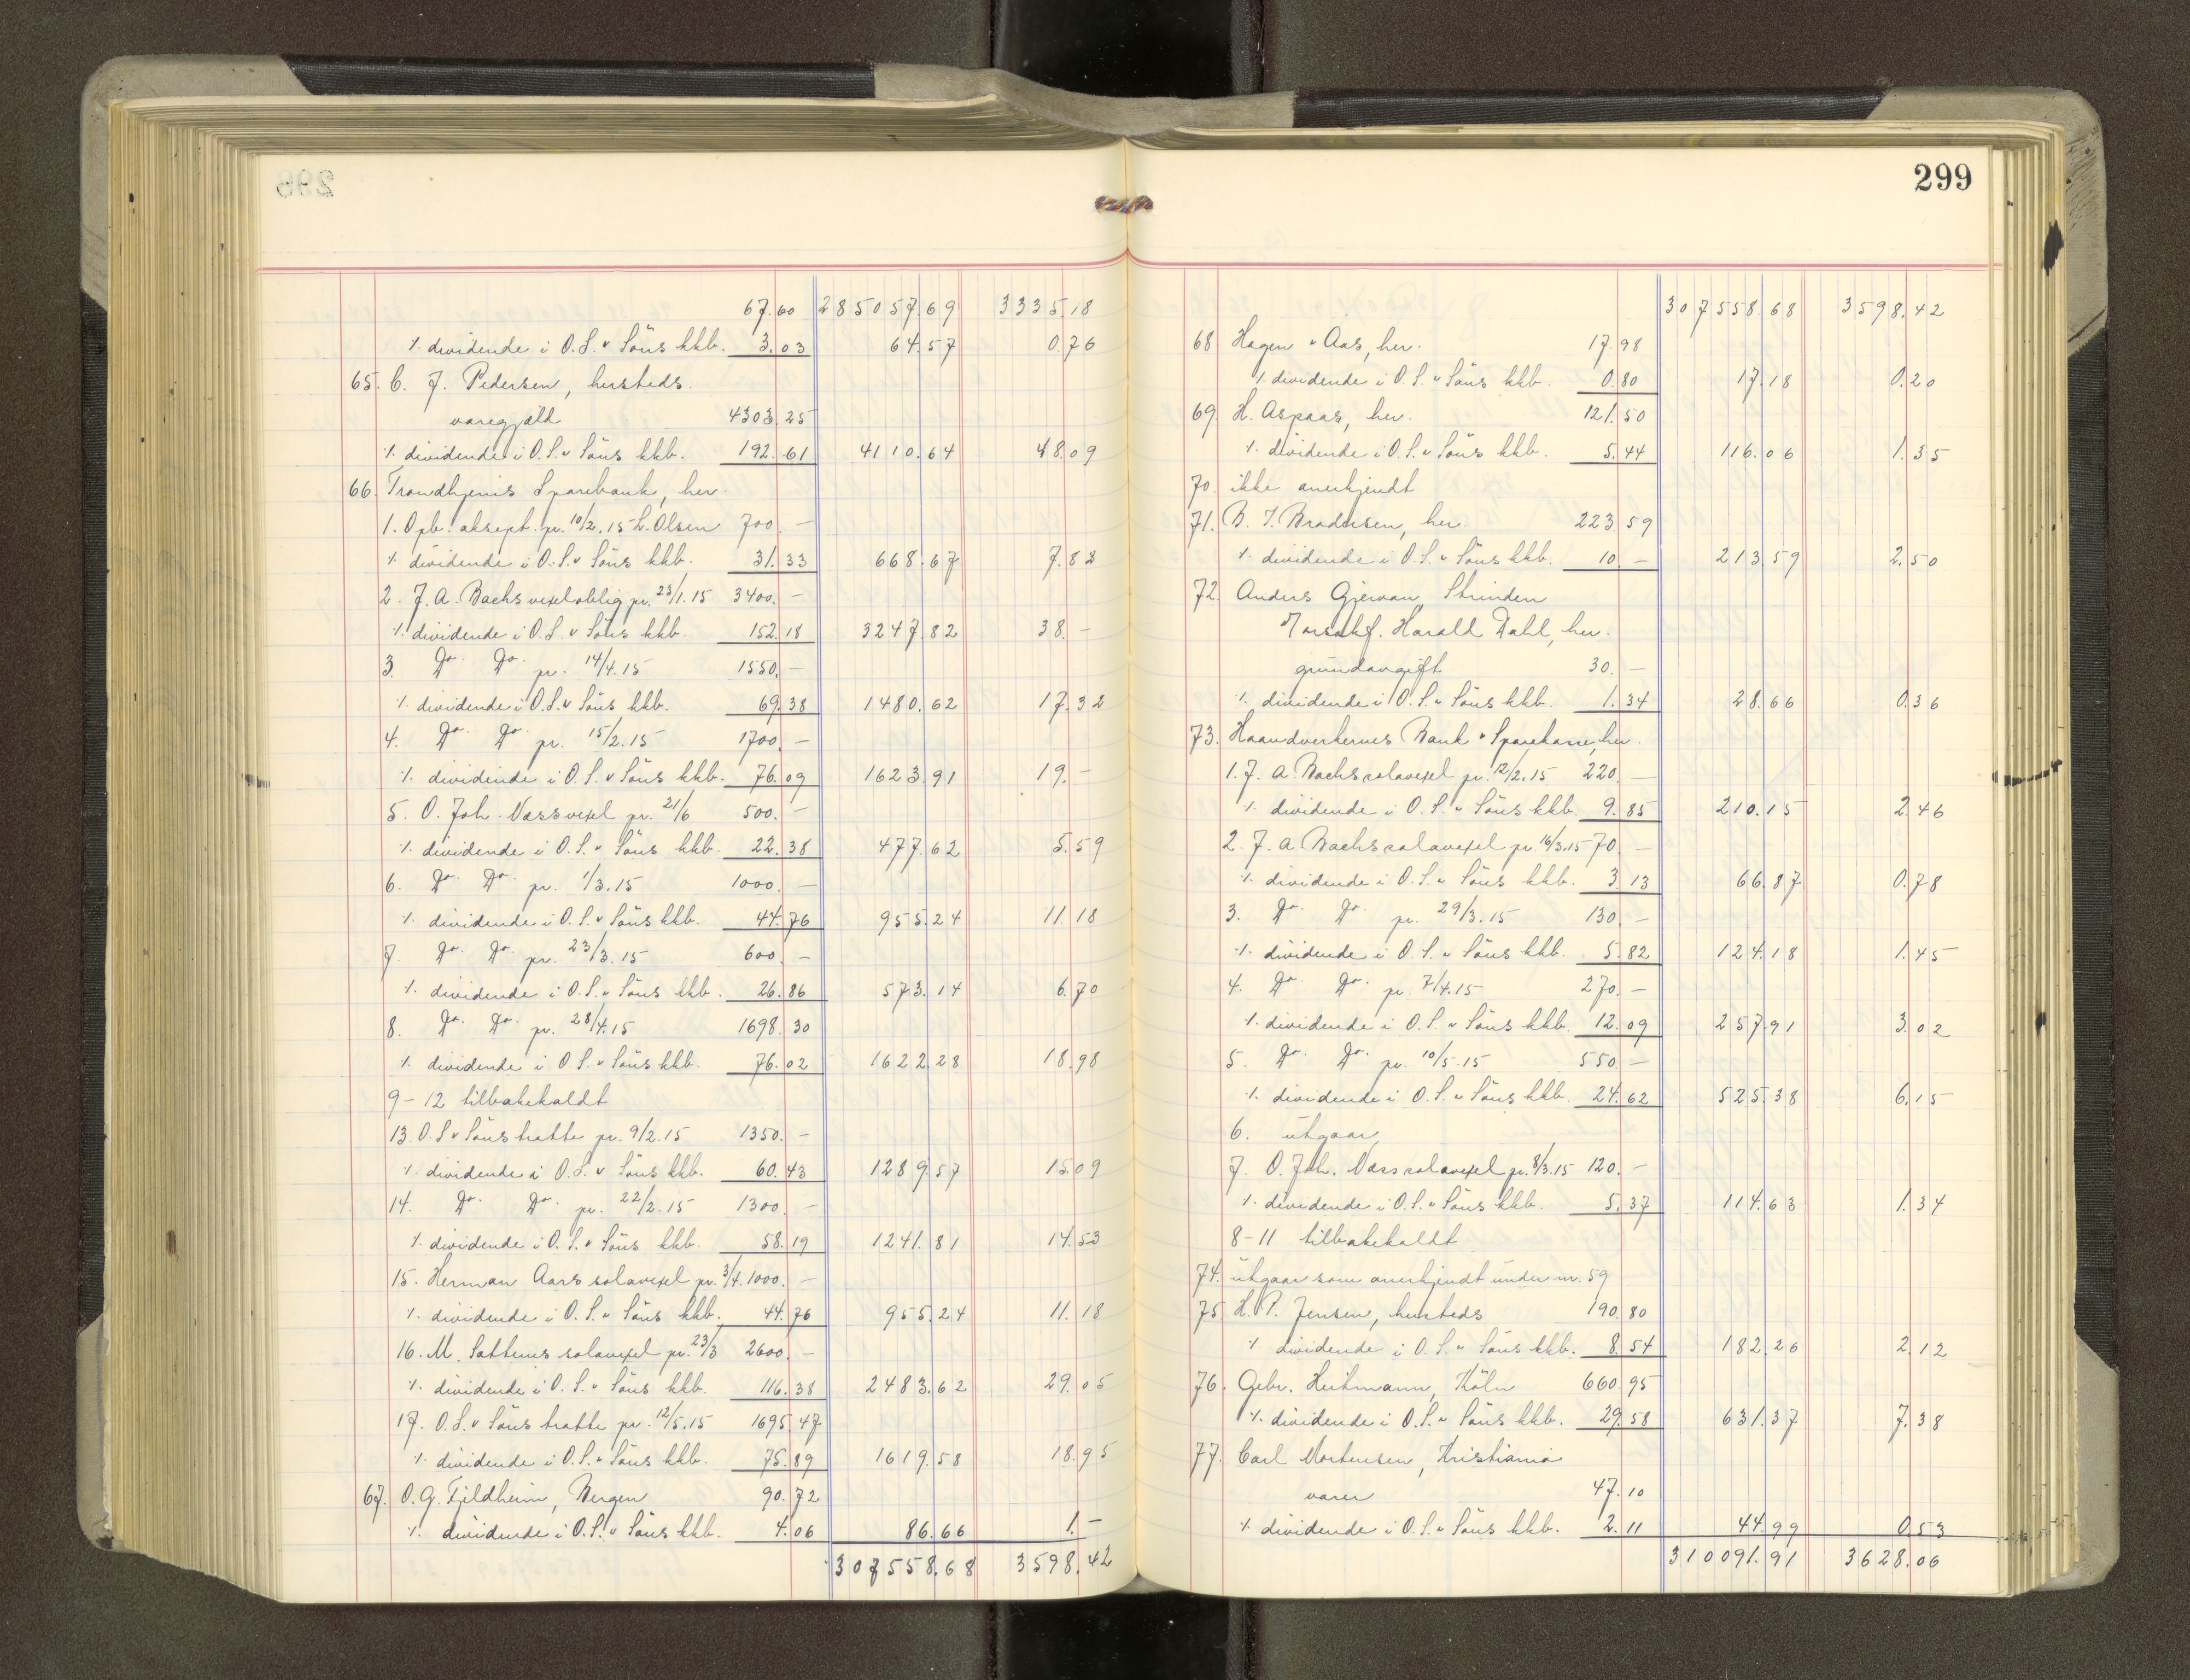 67.60 285057.69 3335.18
% dividende i O.S. & Söns kkb. 3.03 64.57 0.76
65. C. J. Pedersen, hersteds.
varegjæld 4303.25
% dividende i O.S. & Söns kkb. 192.61 4110.64 48.09
66. Trondhjems Sparebank, her
1. Opb. aksept. pr. 10/2.15 L. Olsen 700.-
% dividende i O.S. & Söns kkb. 31.33 668.67 7.82
2. J. A. Bachs vexeloblig pr. 23/1.15 3400.-
% dividende i O.S. & Söns kkb. 152.18 3247.82 38.-
3. Do. Do. pr. 14/4.15 1550.-
% dividende i O.S. & Söns kkb. 69.38 1480.62 17.32
4. Do. Do. pr. 15/2.15 1700.-
% dividende i O.S. & Söns kkb. 76.09 1623.91 19.-
5. O. Joh. Næss vexel pr. 21/6 500.-
% dividende i O.S. & Söns kkb. 22.38 477.62 5.59
6. Do. Do. pr. 1/3.15 1000.-
% dividende i O.S. & Söns kkb. 44.76 955.24 11.18
7. Do. Do. pr. 23/3.15 600.-
% dividende i O.S. & Söns kkb. 26.86 573.14 6.70
8. Do. Do. pr. 28/4.15 1698.30
% dividende i O.S. & Söns kkb. 76.02 1622.28 18.98
9-12 tilbakekaldt
13. O.S. & Söns tratte pr. 9/2.15 1350.-
% dividende i O.S. & Söns kkb. 60.43 1289.57 15.09
14. Do. Do. pr. 22/2.15 1300.-
% dividende i O.S. & Söns kkb. 58.19 1241.81 14.53
15. Herman Aars solavexel pr. 3/4. 1000.-
% dividende i O.S. & Söns kkb. 44.76 955.24 11.18
16. M. Sættems solavexel pr. 23/3 2600.-
% dividende i O.S. & Söns kkb. 116.38 2483.62 29.05
17. O.S. & Söns tratte pr. 12/5.15 1695.47
% dividende i O.S. & Söns kkb. 75.89 1619.58 18.95
67. O. G. Fjeldheim, Bergen 90.72
% dividende i O.S. & Söns kkb. 4.06 86.66 1.-
307558.68 3598.42
299
307558.68 3598.42
68 Hagen & Aas, her. 17.98
% dividende i O.S. & Söns kkb. 0.80 17.18 0.20
69. H. Aspaas, her. 121.50
% dividende i O.S. & Söns kkb. 5.44 116.06 1.35
70. ikke anerkjendt
71. B. I. Brodersen, her. 223.59
% dividende i O.S. & Söns kkb. 10.- 213.59 2.50
72. Anders Gjervan, Strinden
v/orsakf. Harald Dahl, her.
grundavgift 30.-
% dividende i O.S. & Söns kkb. 1.34 28.66 0.36
73. Haandverkernes Bank & Sparekasse, her.
1. J. A. Bachs solavexel pr. 12/2.15 220.-
% dividende i O.S. & Söns kkb. 9.85 210.15 2.46
2. J. A. Bachs solavexel pr. 16/3.15 70.-
% dividende i O.S. & Söns kkb. 3.13 66.87 0.78
3. Do. Do. pr. 29/3.15 130.-
% dividende i O.S. & Söns kkb. 5.82 124.18 1.45
4. Do. Do. pr. 7/4.15 270.-
% dividende i O.S. & Söns kkb. 12.09 257.91 3.02
5. Do. Do. pr. 10/5.15 550.-
% dividende i O.S. & Söns kkb. 24.62 525.38 6.15
6. utgaar
7. O. Joh. Næss solavexel pr. 8/3.15 120.-
% dividende i O.S. & Söns kkb. 5.37 114.63 1.34
8-11 tilbakekaldt
74. utgaar som anerkjendt under nr. 59
75 H. P. Jensen, hersteds 190.80
% dividende i O.S. & Söns kkb. 8.54 182.26 2.12
76. Gebr. Heitmann, Köln 660.95
% dividende i O.S. & Söns kkb. 29.58 631.37 7.38
77. Carl Mortensen, Kristiania
varer 47.10
% dividende i O.S. & Söns kkb. 2.11 44.99 0.53
310091.91 3628.06